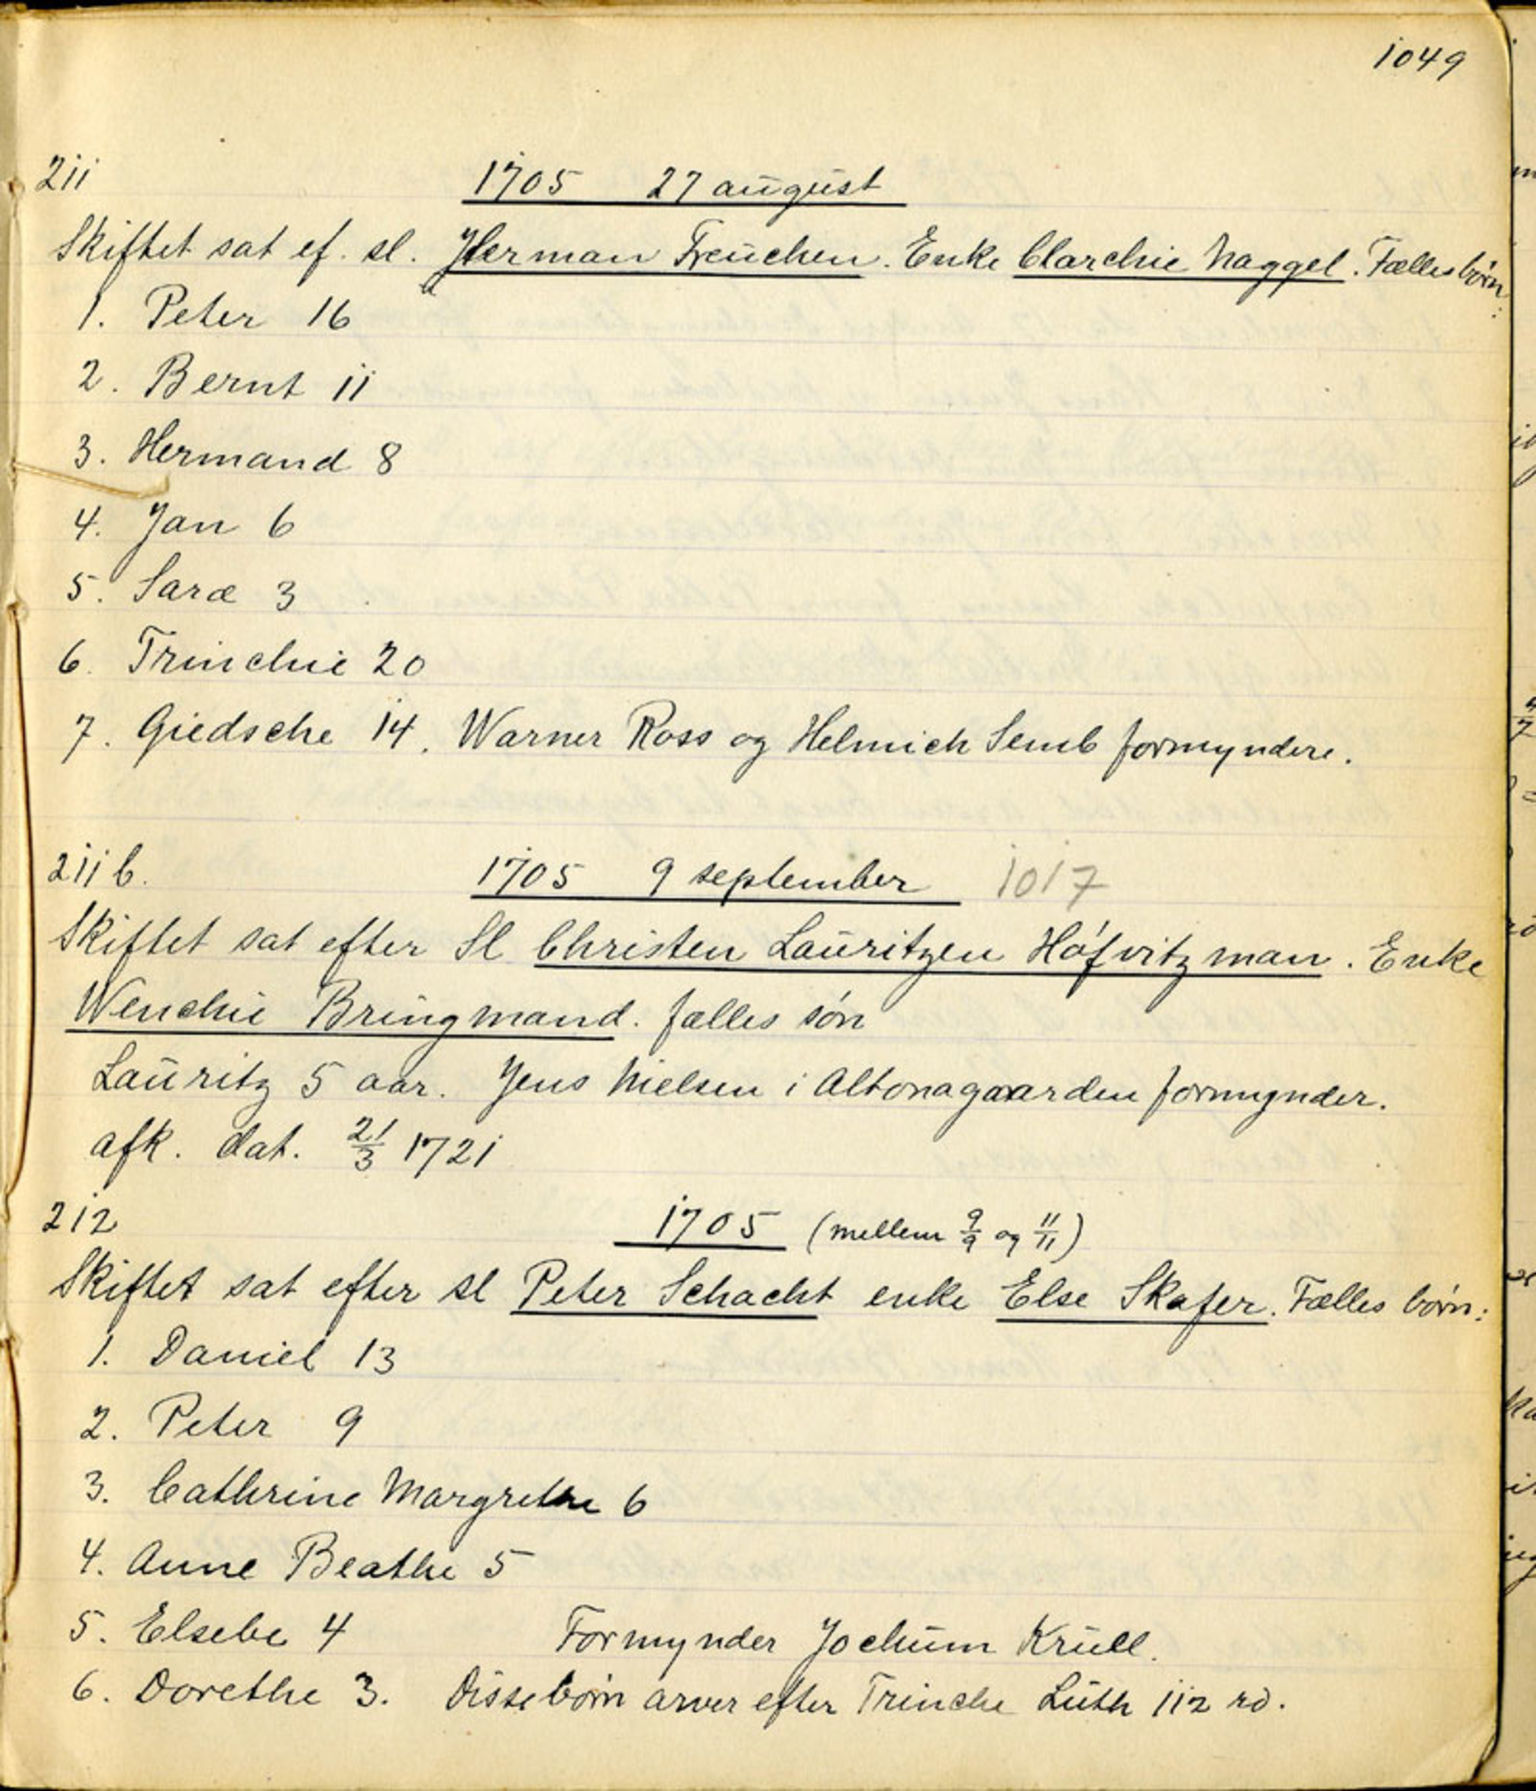 1049
211
1705 27 august
Skiftet sat ef. sl. Herman Freuchen. Enke Clarchie Naggel. Fællesbørn:
1. Peter 16
2. Bernt 11
3. Hermand 8
4. Jan 6
5. Saræ 3
6. Trinchie 20
7. Giedsche 14. Warner Ross og Helmich Semb formyndere.
211 b. 1705 9 september 1017
Skiftet sat efter Sl Christen Lauritzen Høfvitzman. Enke
Wenchie Bringmand. fælles søn
Lauritz 5 aar. Jens Nielsen i Altonagaarden formynder.
afk. dat. 21/3 1721
212 1705 (mellem 9/9 og 11/11)
Skiftet sat efter sl Peter Schacht enke Else Skafer. Fælles børn:
1. Daniel 13
2. Peter 9
3. Cathrine Margrethe 6
4. Anne Beathe 5
5. Elsebe 4 Formynder Jochum Krull.
6. Dorethe 3. Disse børn arver efter Trinche Luth 112 rd.